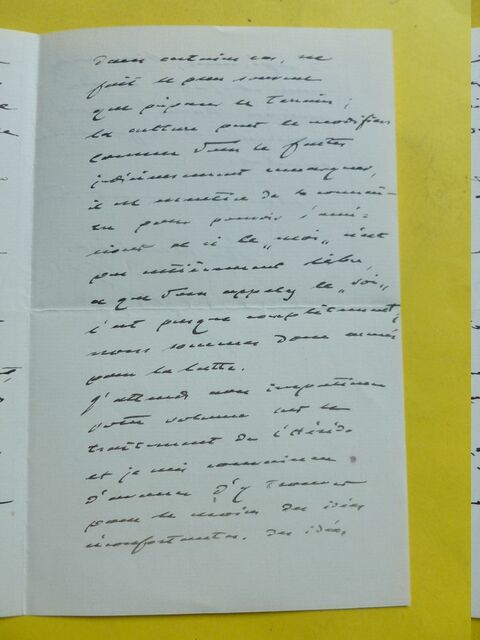 Dans certains cas, ne
fait le plus souvent
que préparer le terrain ;
la culture peut le modifier
comme vous le faites
judicieusement remarquer,
il est
pour pouvoir
et si le „moi„ n'est
pas entièrement libre,
ce que vous appelez le „soi„
l'est presque complètement ;
nous sommes donc armés
pour la lutte.
J'attends avec impatience
votre volume sur le
traitement de l'
et je suis convaincu
d'avance d'y trouver
pour le moins des idées
réconfortantes. des idées